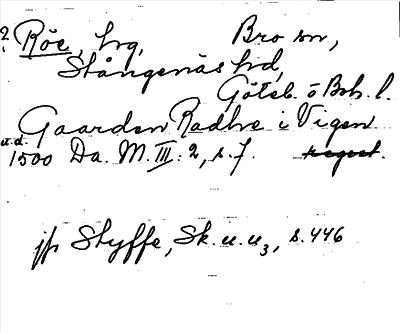 ? Röe, hrg, Bro sn,
Stångenäs hd,
Göteb. o Boh. l.
Gaarden Radhe i Vigen
u.d. 1500 Da. M. III: 2, s. 7. regest.
jfr Styffe, Sk. u. u 3, s. 446